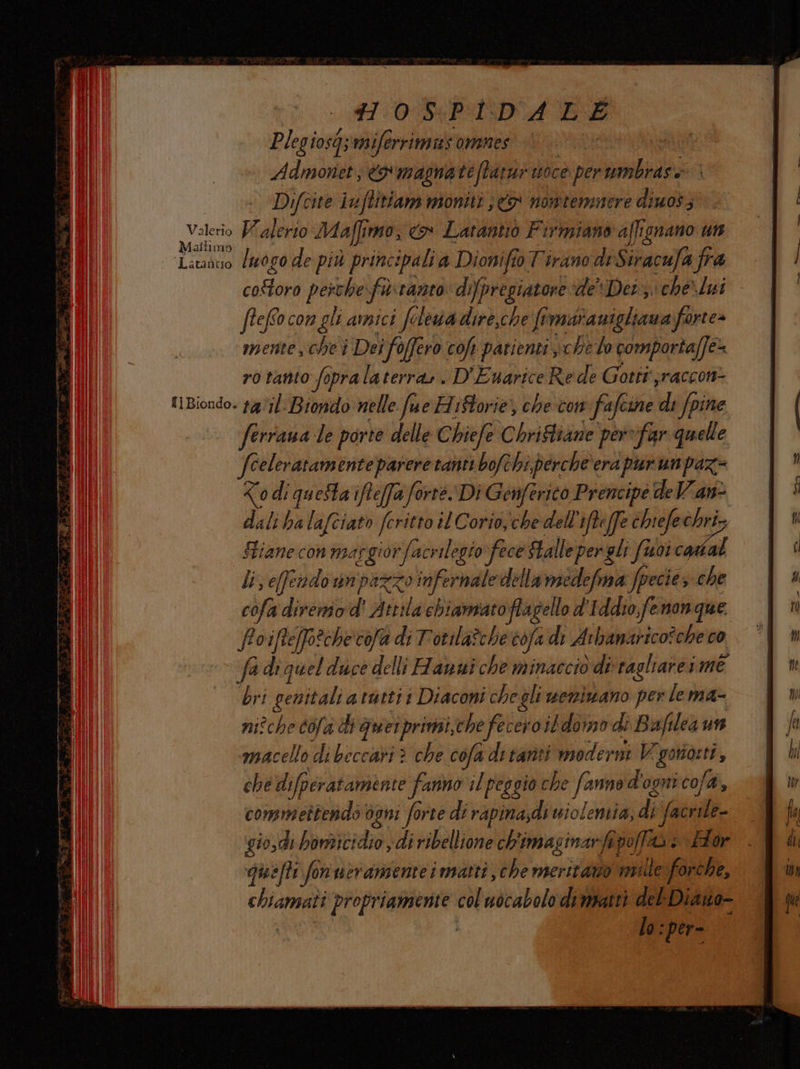 HOSPIDALE
Plegiosq; miserrimus omnes
Admonet, & magna testatur uoce per umbras.
Discite iustitiam moniti, & non temnere diuos;
Valerio Massimo, & Latantio Firmiano assignano un
Valerio
Massimo
Latantio
luogo de più principali a Dionisio Tirano di Siracusa fra
costoro perche fù tanto dispregiatore de' Dei, che lui
stesso con gli amici soleua dire, che si marauigliaua forte=
mente, che i Dei fossero cosi patienti, che lo comportasse=
ro tanto sopra la terra. D'Euarice Re de Gotti, raccon=
Il Biondo.
ta il Biondo nelle sue Historie, che con fascine di spine
serraua le porte delle Chiese Christiane per far quelle
sceleratamente parere tanti boschi, perche era pur un paz=
Zo di questa istessa sorte. Di Genserico Prencipe de Van=
dali ha lasciato scritto il Corio, che dell'istesse chiese chri=
stiane con maggior sacrilegio fece stalle per gli suoi caual
li, essendo un pazzo infernale della medesma specie, che
cosa diremo d'Attila chiamato flagello d'Iddio, se non que
sto istesso? che cosa di Totila? che cosa di Athanarico? che co
sa di quel duce delli Hanni che minacciò di tagliare i mē
bri genitali a tutti i Diaconi che gli ueniuano per le ma=
ni? che cosa di quei primi, che fecero il domo di Basilea un
macello di beccari? che cosa di tanti moderni Vgonotti,
che disperatamente fanno il peggio che fanno d'ogni cosa,
commettendo ogni sorte di rapina, di uiolentia, di sacrile-
gio, di homicidio, di ribellione ch'imaginar si possa. Hor
questi son ueramente i matti, che meritano mille forche,
chiamati propriamente col uocabolo di matti del Diauo-
lo: per=